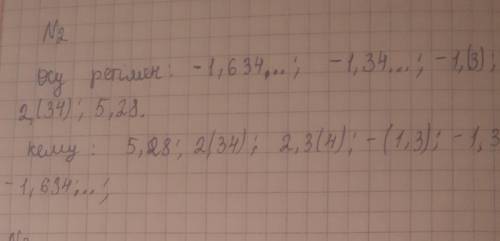 N2
Өсу ретімен: -1,634...; -1,34...; -1,(3);
2,(34); 5,28.
кему: 5,28; 2(34); 2,3(4); -(1,3); -1,3
-1,634;...;